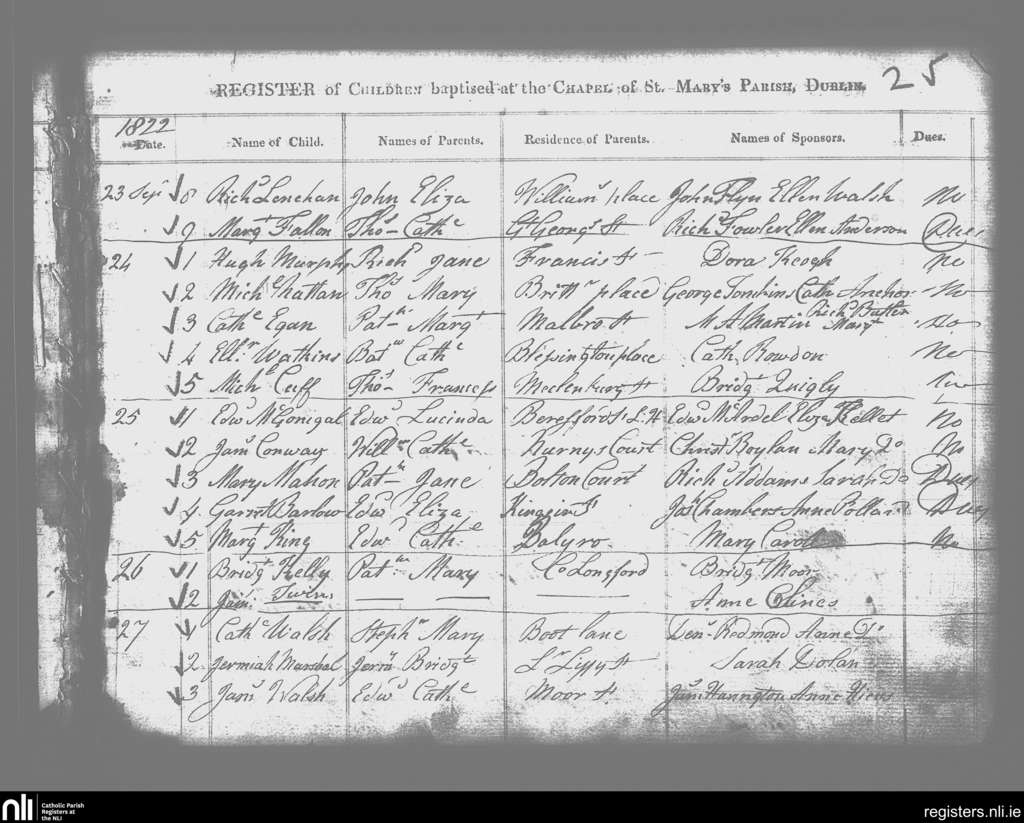 25
REGISTER of CHILDREN baptised at the CHAPEL of St. MARY'S PARISH, DUBLIN.
1822
Date. Name of Child. Names of Parents. Residence of Parents. Names of Sponsors. Dues.
23 Sep 8 Richd Lenehan John Eliza Williams place John Flyn Ellen Walsh No
9 Margt Fallon Thos Cathe Gt Georgs St Richd Fowler Ellen Anderson Dues
24 1 Hugh Murphy Rich Jane Francis St Dora Keogh No
2 Mich Thos Mary Brittn place George Tomkins Cath No
3 Cathe Egan Patk Margt Malbro St M A Martin Richd Butler Margt No
4 Elln Watkins Bat Cathe Blessington place Cath Rowdon No
5 Michl Cuff Thos Frances Mecklenburg St Bridgt Quigly
25 1 Edwd McGonigal Edwd Lucinda Beresford St Edwd McArdel Eliza Kellet No
2 Jams Conway Willm Cathe Court Christr Boylan Mary Do No
3 Mary Mahon Patk Jane Bolton Court Richd Addams Sarah Do Dues
4 Garret Barlow Edwd Eliza Jas Chambers Anne Pollard Dues
5 Margt King Edwd Cathe Balyro Mary Caroll No
26 1 Bridgt Kelly Patk Mary Co Longford Bridgt Moor
2 Jam Twins — — — Anne Clines
27 1 Cathe Walsh Stephn Mary Boot lane Denn Redmond Anne Do
2 Jermiah Marshal Jerm Bridgt Lr Liffy St Sarah Dolan
3 Jams Walsh Edwd Cathe Moor St Jams Hanngton Anne
nli Catholic Parish
Registers at
the NLI
registers.nli.ie